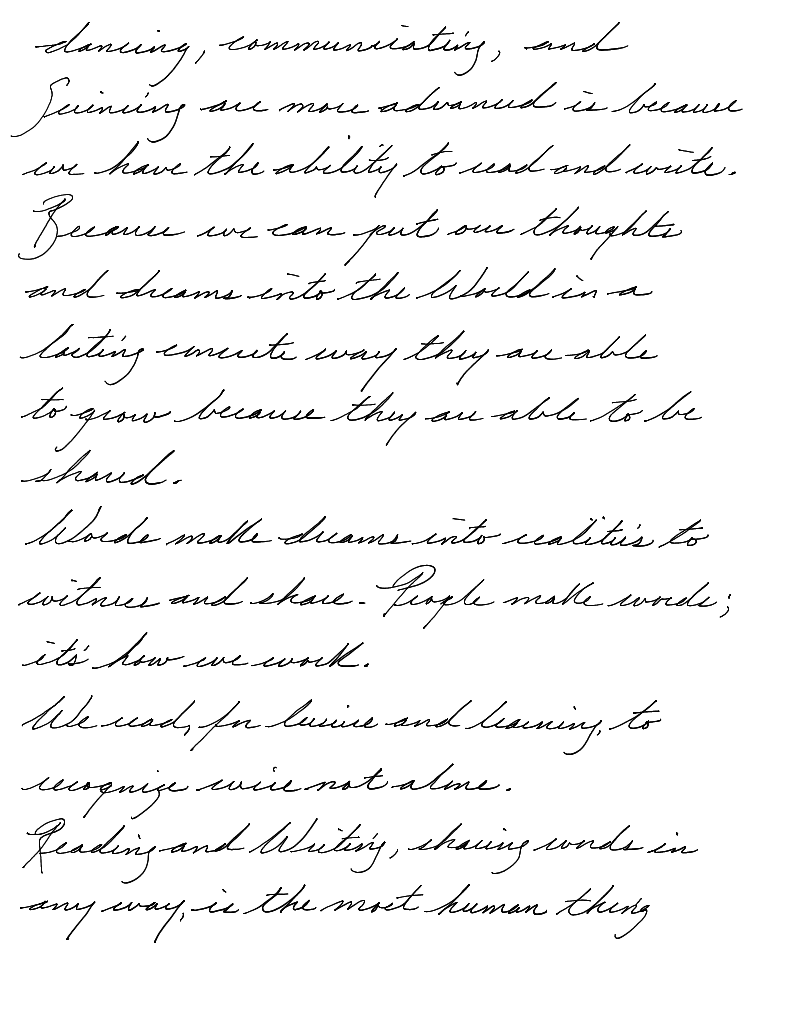 dancing, communicating, and
Sciencing are more advanced is because
we have the ability to read and write.
Because we can put our thoughts
and dreams into the World in a
lasting concrete way they are able
to grow because they are able to be
shared.
Words make dreams into realities to
witness and share. People make words;
it's how we work.
We read, for leisure and learning, to
recognize we're not alone.
Reading and Writing, sharing words in
any way, is the most human thing